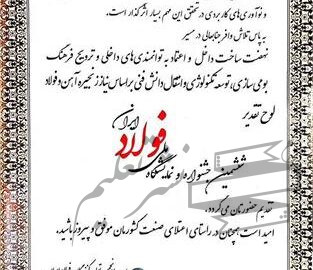 و نوآوری‌های کاربردی در تحقق این مهم بسیار اثرگذار است.
به پاس تلاش وافر جنابعالی در مسیر
نهضت ساخت داخل و اعتماد به توانمندی‌های داخلی و ترویج فرهنگ
بومی‌سازی، توسعه تکنولوژی و انتقال دانش فنی بر اساس نیاز زنجیره آهن و فولاد
لوح تقدیر
ششمین جشنواره و نمایشگاه ملی فولاد ایران
تقدیم حضورتان می‌گردد.
امید است همچنان در راستای اعتلای صنعت کشورمان موفق و پیروز باشید.
نشر تعلیم